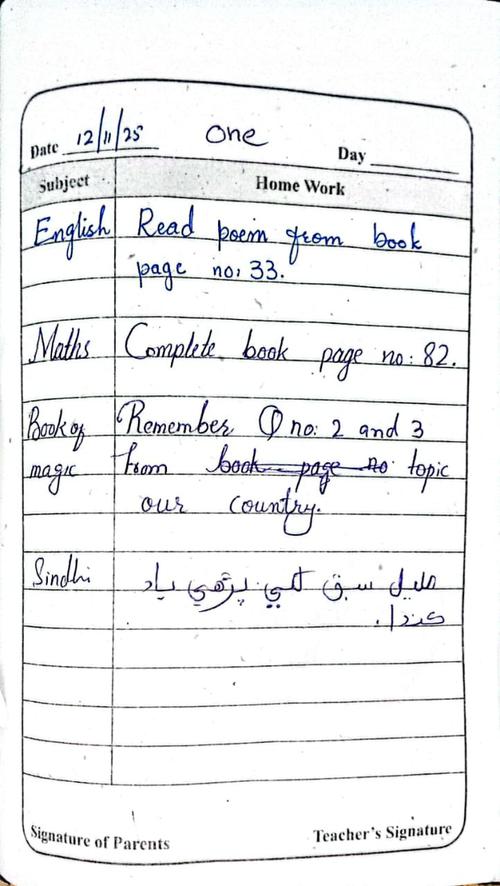 Date 12/11/25 One Day
Subject Home Work
English Read poem from book
page no: 33.
Maths Complete book page no: 82.
Book of Remember Q no: 2 and 3
magic from book page no topic
our country.
Sindhi مليل سبق لکي پڙهي ياد
ڪندا.
Signature of Parents Teacher's Signature